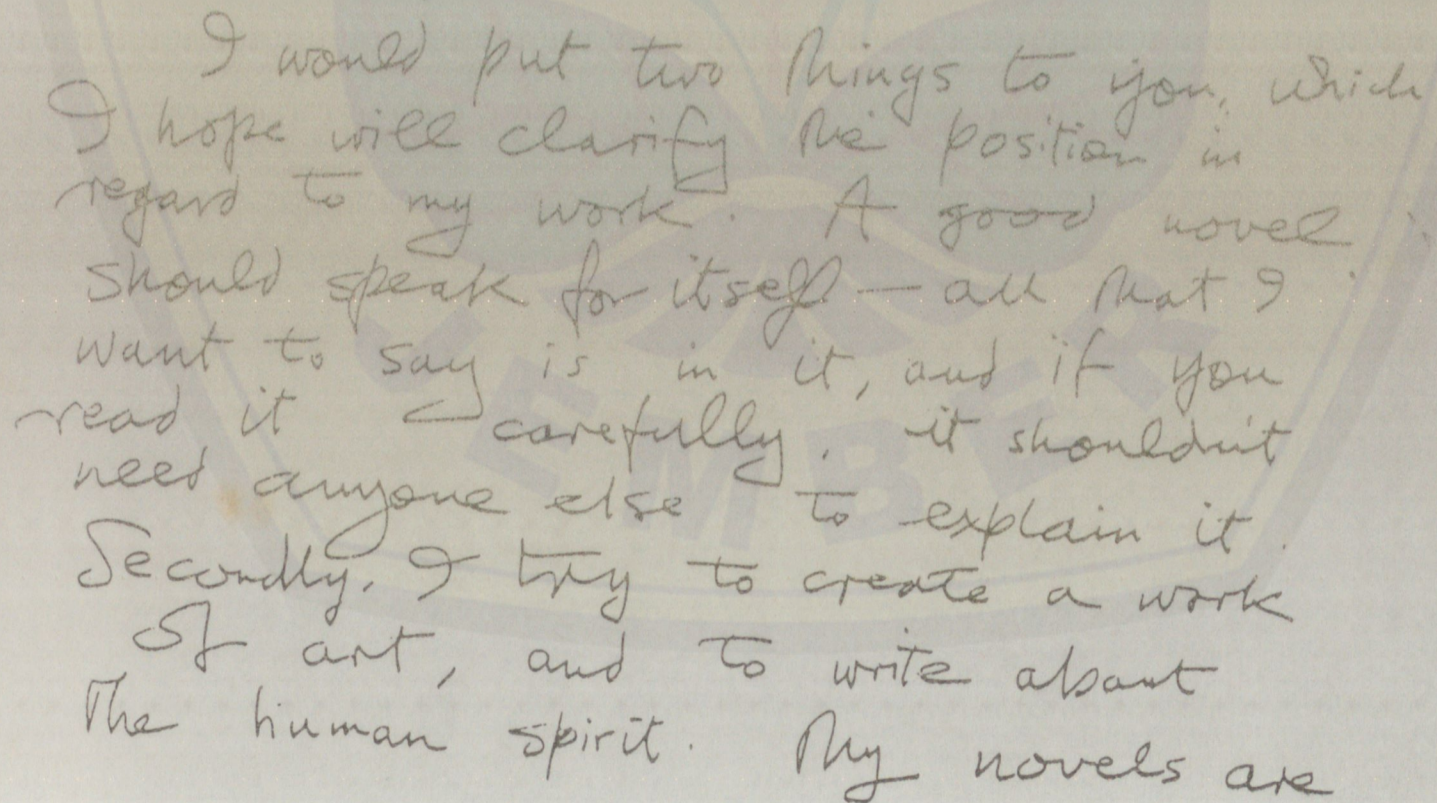 I would put two things to you, which
I hope will clarify the position in
regard to my work. A good novel
should speak for itself — all that I
want to say is in it, and if you
read it carefully, it shouldn't
need anyone else to explain it.
Secondly, I try to create a work
of art, and to write about
the human spirit. My novels are